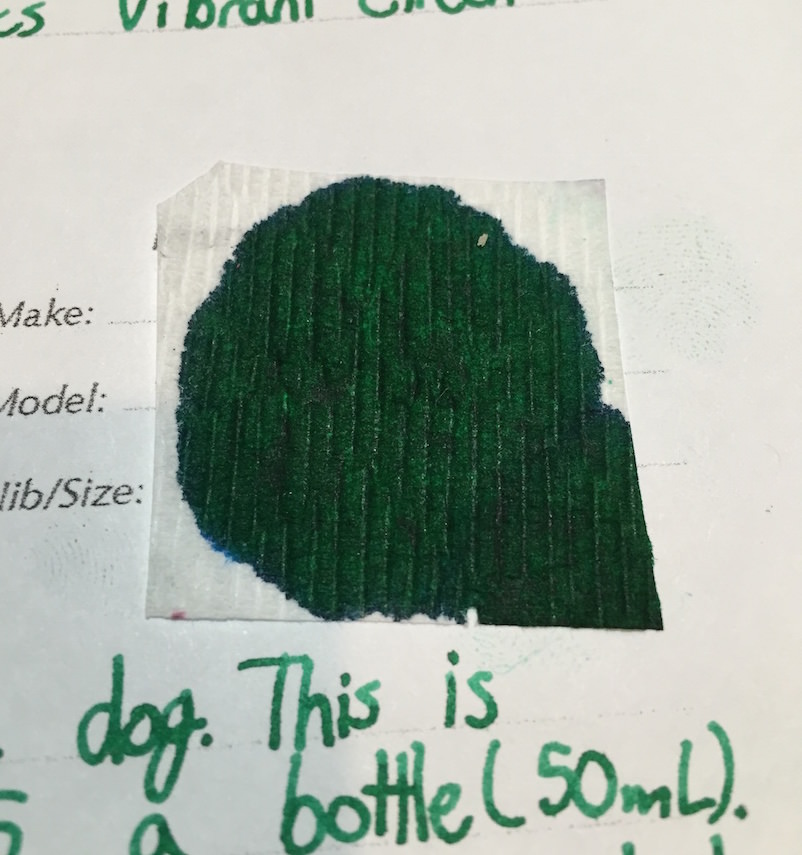 Vibrant Green
Make:
Model:
Nib/Size:
dog. This is
a bottle (50mL).